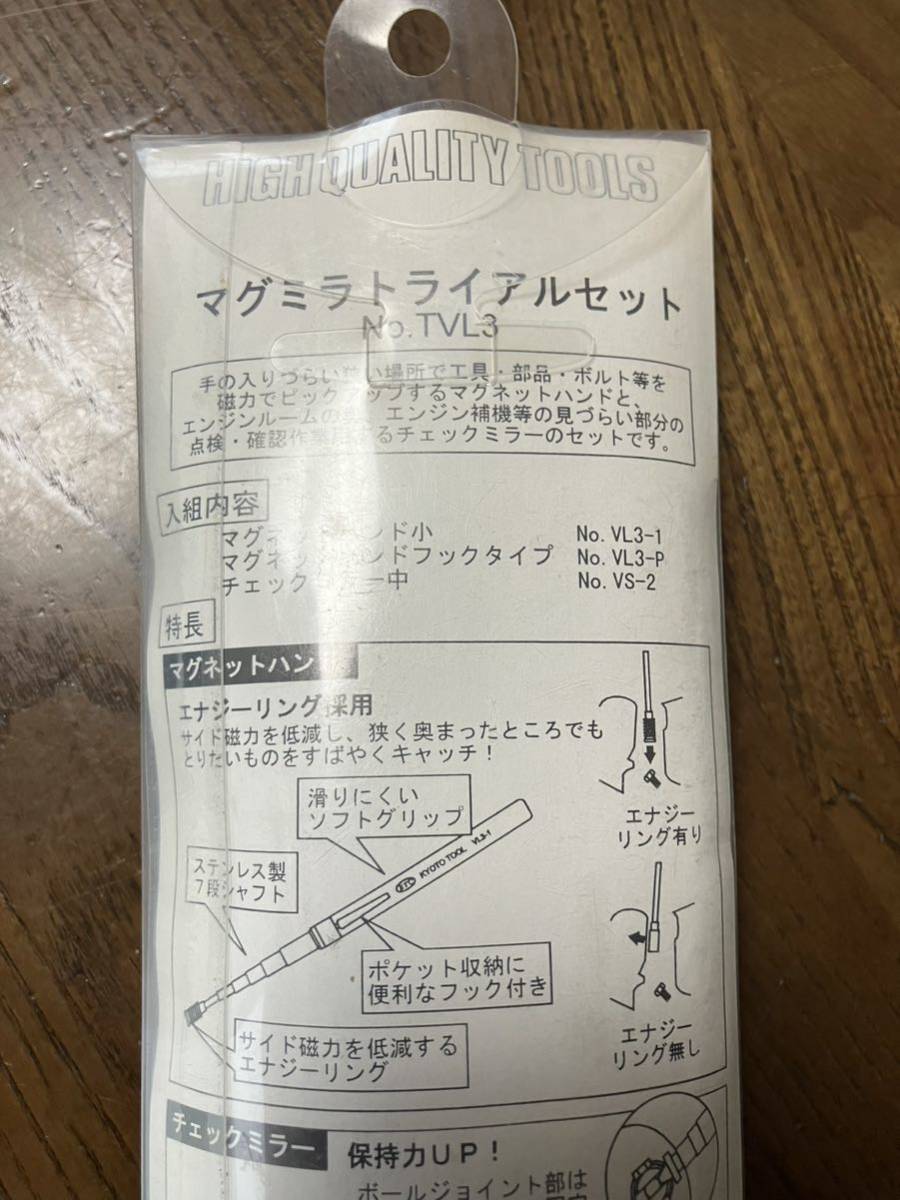 HIGH QUALITY TOOLS
マグミラトライアルセット
No.TVL3
手の入りづらい狭い場所で工具・部品・ボルト等を
磁力でピックアップするマグネットハンドと、
エンジンルームの奥、エンジン補機等の見づらい部分の
点検・確認作業 るチェックミラーのセットです。
入組内容
マグネットハンド小 No. VL3-1
マグネットハンドフックタイプ No. VL3-P
チェックミラー中 No. VS-2
特長
マグネットハンド
エナジーリング採用
サイド磁力を低減し、狭く奥まったところでも
とりたいものをすばやくキャッチ！
滑りにくい
ソフトグリップ
ステンレス製
7段シャフト
KTC KYOTO TOOL VL3-1
ポケット収納に
便利なフック付き
サイド磁力を低減する
エナジーリング
エナジー
リング有り
エナジー
リング無し
チェックミラー
保持力UP！
ボールジョイント部は